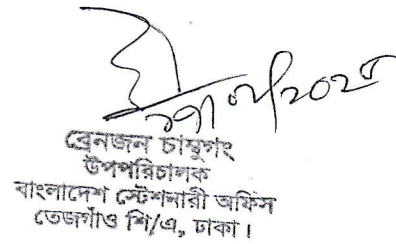 ব্রেনজন চাম্বুগং
উপপরিচালক
বাংলাদেশ স্টেশনারী অফিস
তেজগাঁও শি/এ, ঢাকা।